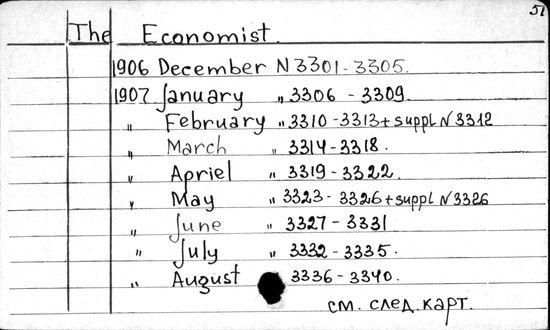 51
The Economist.
1906 December N 3301-3305.
1907 January „ 3306 - 3309
„ February „ 3310-3313+suppl N 3312
„ March „ 3314-3318.
„ Apriel „ 3319-3322
„ May „ 3323-3326+suppl N 3326
„ June „ 3327-3331
„ July „ 3332-3335.
„ August 3336-3340.
см. след. карт.